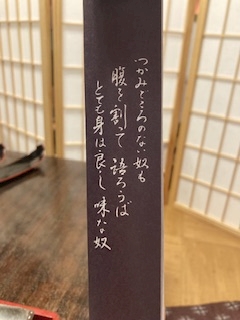 つかみどころのない奴も
腹を割って語ろうば
とても身は良し味な奴